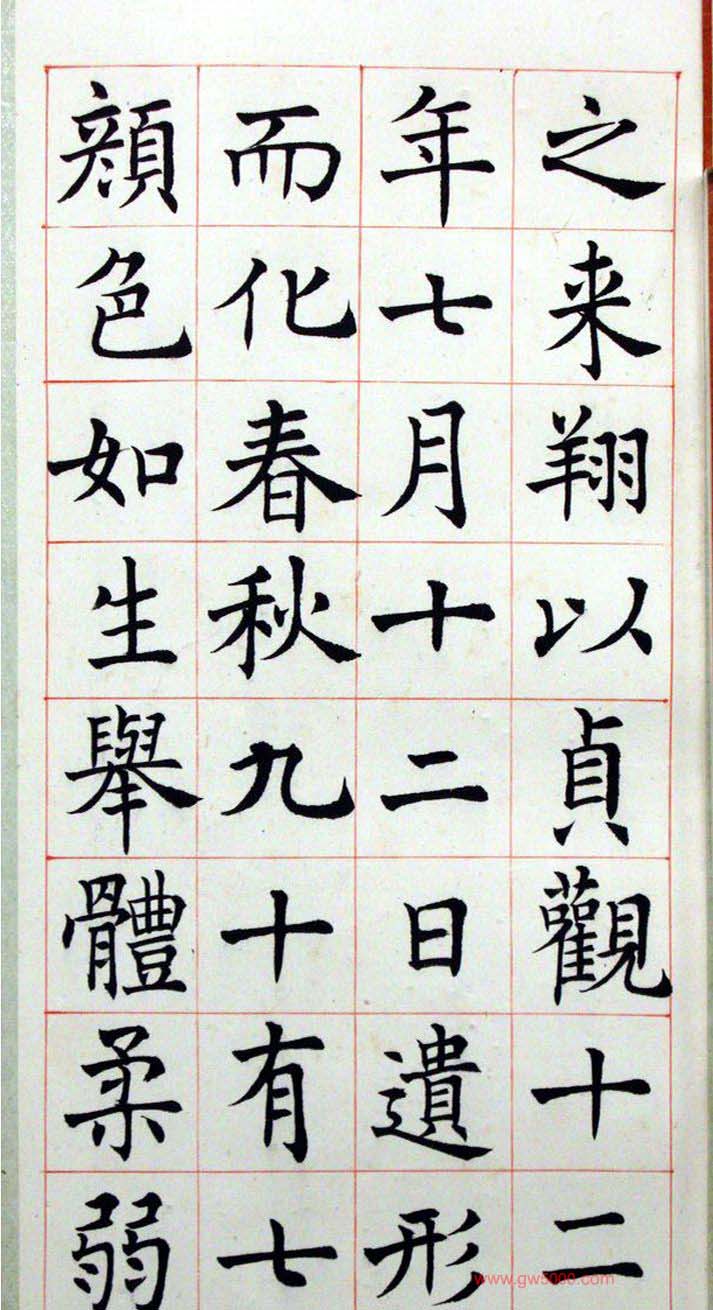 之来翔以貞觀十二
年七月十二日遺形
而化春秋九十有七
顔色如生舉體柔弱
www.gw5000.com